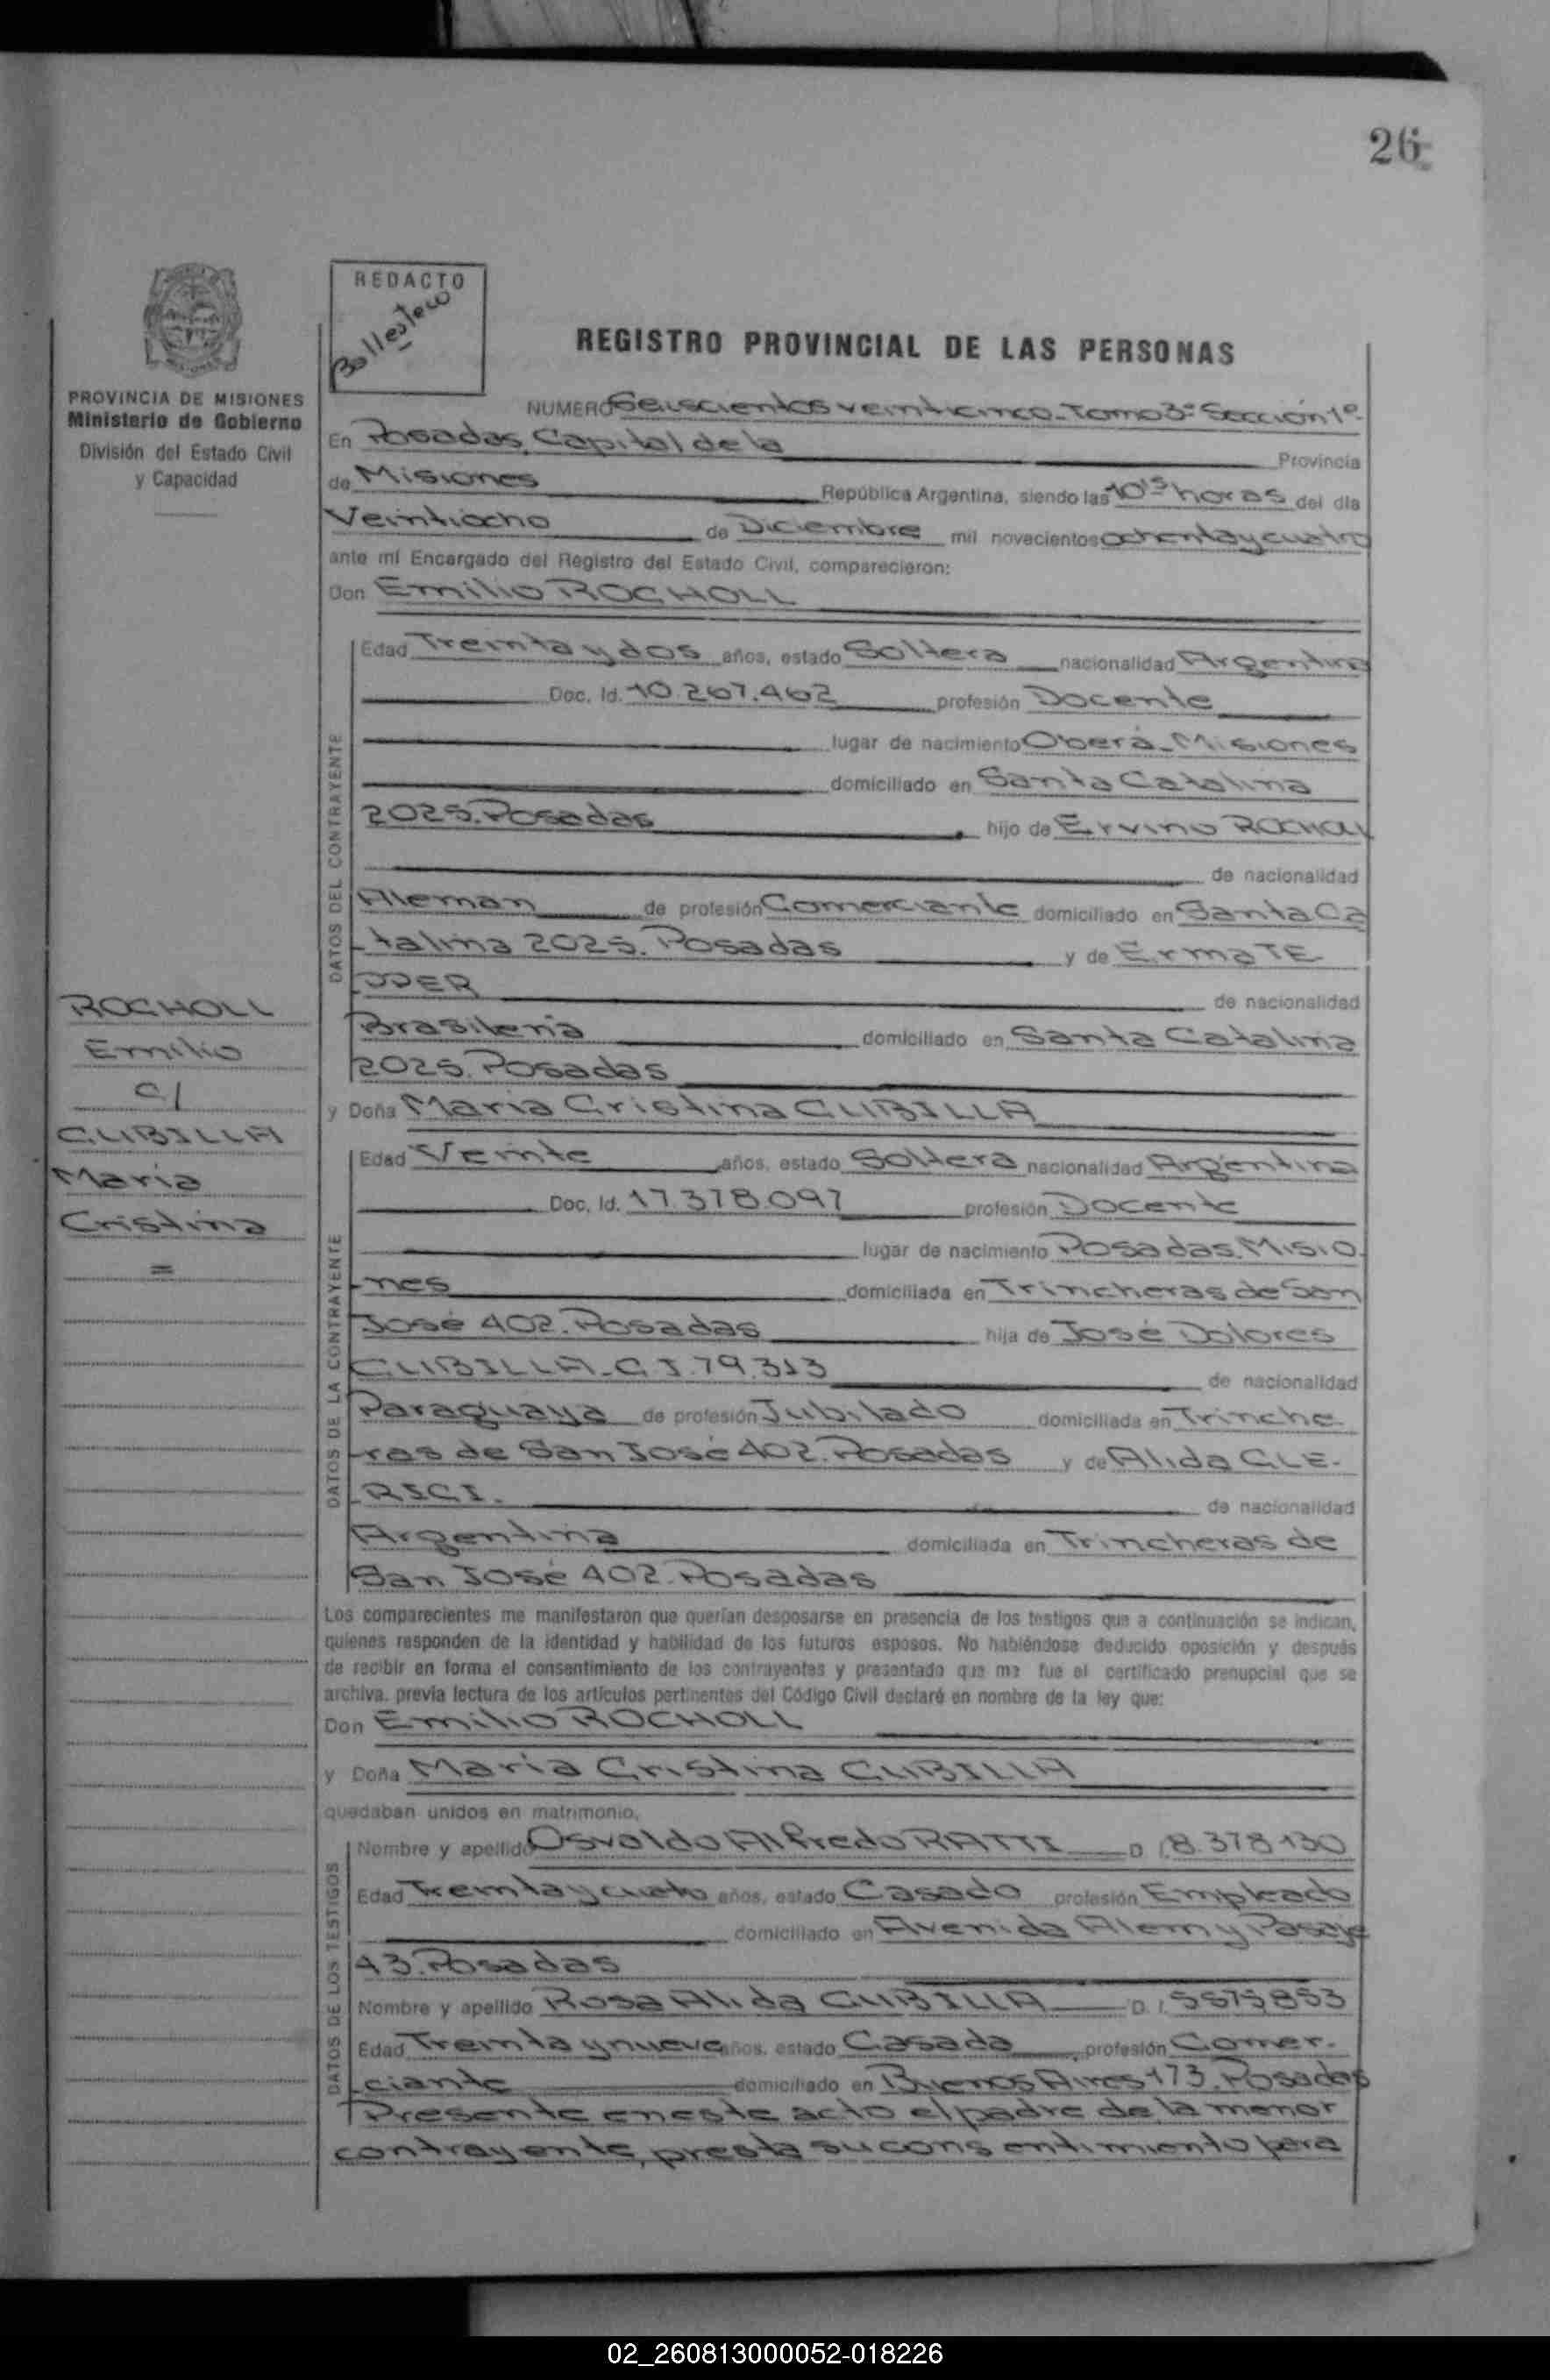 26
REDACTO
Ballestero
REGISTRO PROVINCIAL DE LAS PERSONAS
PROVINCIA DE MISIONES
Ministerio de Gobierno
División del Estado Civil
y Capacidad
NUMERO Seiscientos veinticinco-Tomo 3º Sección 1º
En Posadas, Capital de la Provincia
de Misiones República Argentina, siendo las 10 15 horas del día
Veintiocho de Diciembre mil novecientos ochenta y cuatro
ante mí Encargado del Registro del Estado Civil, comparecieron:
Don Emilio ROCHOLL
DATOS DEL CONTRAYENTE
Edad Treinta y dos años, estado Soltero nacionalidad Argentina
Doc. Id. 10.267.462 profesión Docente
lugar de nacimiento Oberá-Misiones
domiciliado en Santa Catalina
2025. Posadas hijo de Ervino ROCHOLL
de nacionalidad
Aleman de profesión Comerciante domiciliado en Santa Ca
-talina 2025. Posadas y de Erma TE-
-PPER de nacionalidad
Brasileña domiciliado en Santa Catalina
2025. Posadas
ROCHOLL
Emilio
c/
CUBILLA
Maria
Cristina
=
y Doña Maria Cristina CUBILLA
DATOS DE LA CONTRAYENTE
Edad Veinte años, estado Soltera nacionalidad Argentina
Doc. Id. 17.378.097 profesión Docente
lugar de nacimiento Posadas. Misio-
-nes domiciliada en Trincheras de San
José 402. Posadas hija de José Dolores
CUBILLA-C.I.79.313 de nacionalidad
Paraguaya de profesión Jubilado domiciliada en Trinche-
-ras de San José 402. Posadas y de Alida CLE-
-RICI. de nacionalidad
Argentina domiciliada en Trincheras de
San José 402. Posadas
Los comparecientes me manifestaron que querían desposarse en presencia de los testigos que a continuación se indican,
quienes responden de la identidad y habilidad de los futuros esposos. No habiéndose deducido oposición y después
de recibir en forma el consentimiento de los contrayentes y presentado que me fue el certificado prenupcial que se
archiva, previa lectura de los artículos pertinentes del Código Civil declaré en nombre de la ley que:
Don Emilio ROCHOLL
y Doña Maria Cristina CUBILLA
quedaban unidos en matrimonio.
DATOS DE LOS TESTIGOS
Nombre y apellido Osvaldo Alfredo RATTI D.I. 8.378.130
Edad Treinta y cuatro años, estado Casado profesión Empleado
domiciliado en Avenida Alem y Pasaje
43. Posadas
Nombre y apellido Rosa Alida CUBILLA D.I. 5575853
Edad Treinta y nueve años, estado Casada profesión Comer-
-ciante domiciliado en Buenos Aires 173. Posadas
Presente en este acto el padre de la menor
contrayente, presta su consentimiento para
02_260813000052-018226